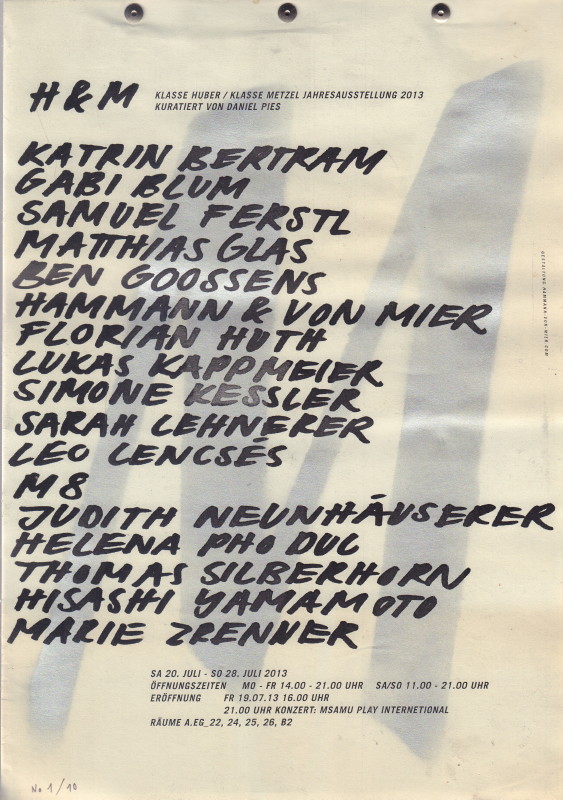 H & M
KLASSE HUBER / KLASSE METZEL JAHRESAUSSTELLUNG 2013
KURATIERT VON DANIEL PIES
KATRIN BERTRAM
GABI BLUM
SAMUEL FERSTL
MATTHIAS GLAS
BEN GOOSSENS
HAMMANN & VON MIER
FLORIAN HUTH
LUKAS KAPPMEIER
SIMONE KESSLER
SARAH LEHNERER
LEO LENCSÉS
M8
JUDITH NEUNHÄUSERER
HELENA PHO DUC
THOMAS SILBERHORN
HISASHI YAMAMOTO
MARIE ZRENNER
SA 20. JULI - SO 28. JULI 2013
ÖFFNUNGSZEITEN MO - FR 14.00 - 21.00 UHR SA/SO 11.00 - 21.00 UHR
ERÖFFNUNG FR 19.07.13 16.00 UHR
21.00 UHR KONZERT: MSAMU PLAY INTERNETIONAL
RÄUME A.EG_22, 24, 25, 26, B2
No 1/10